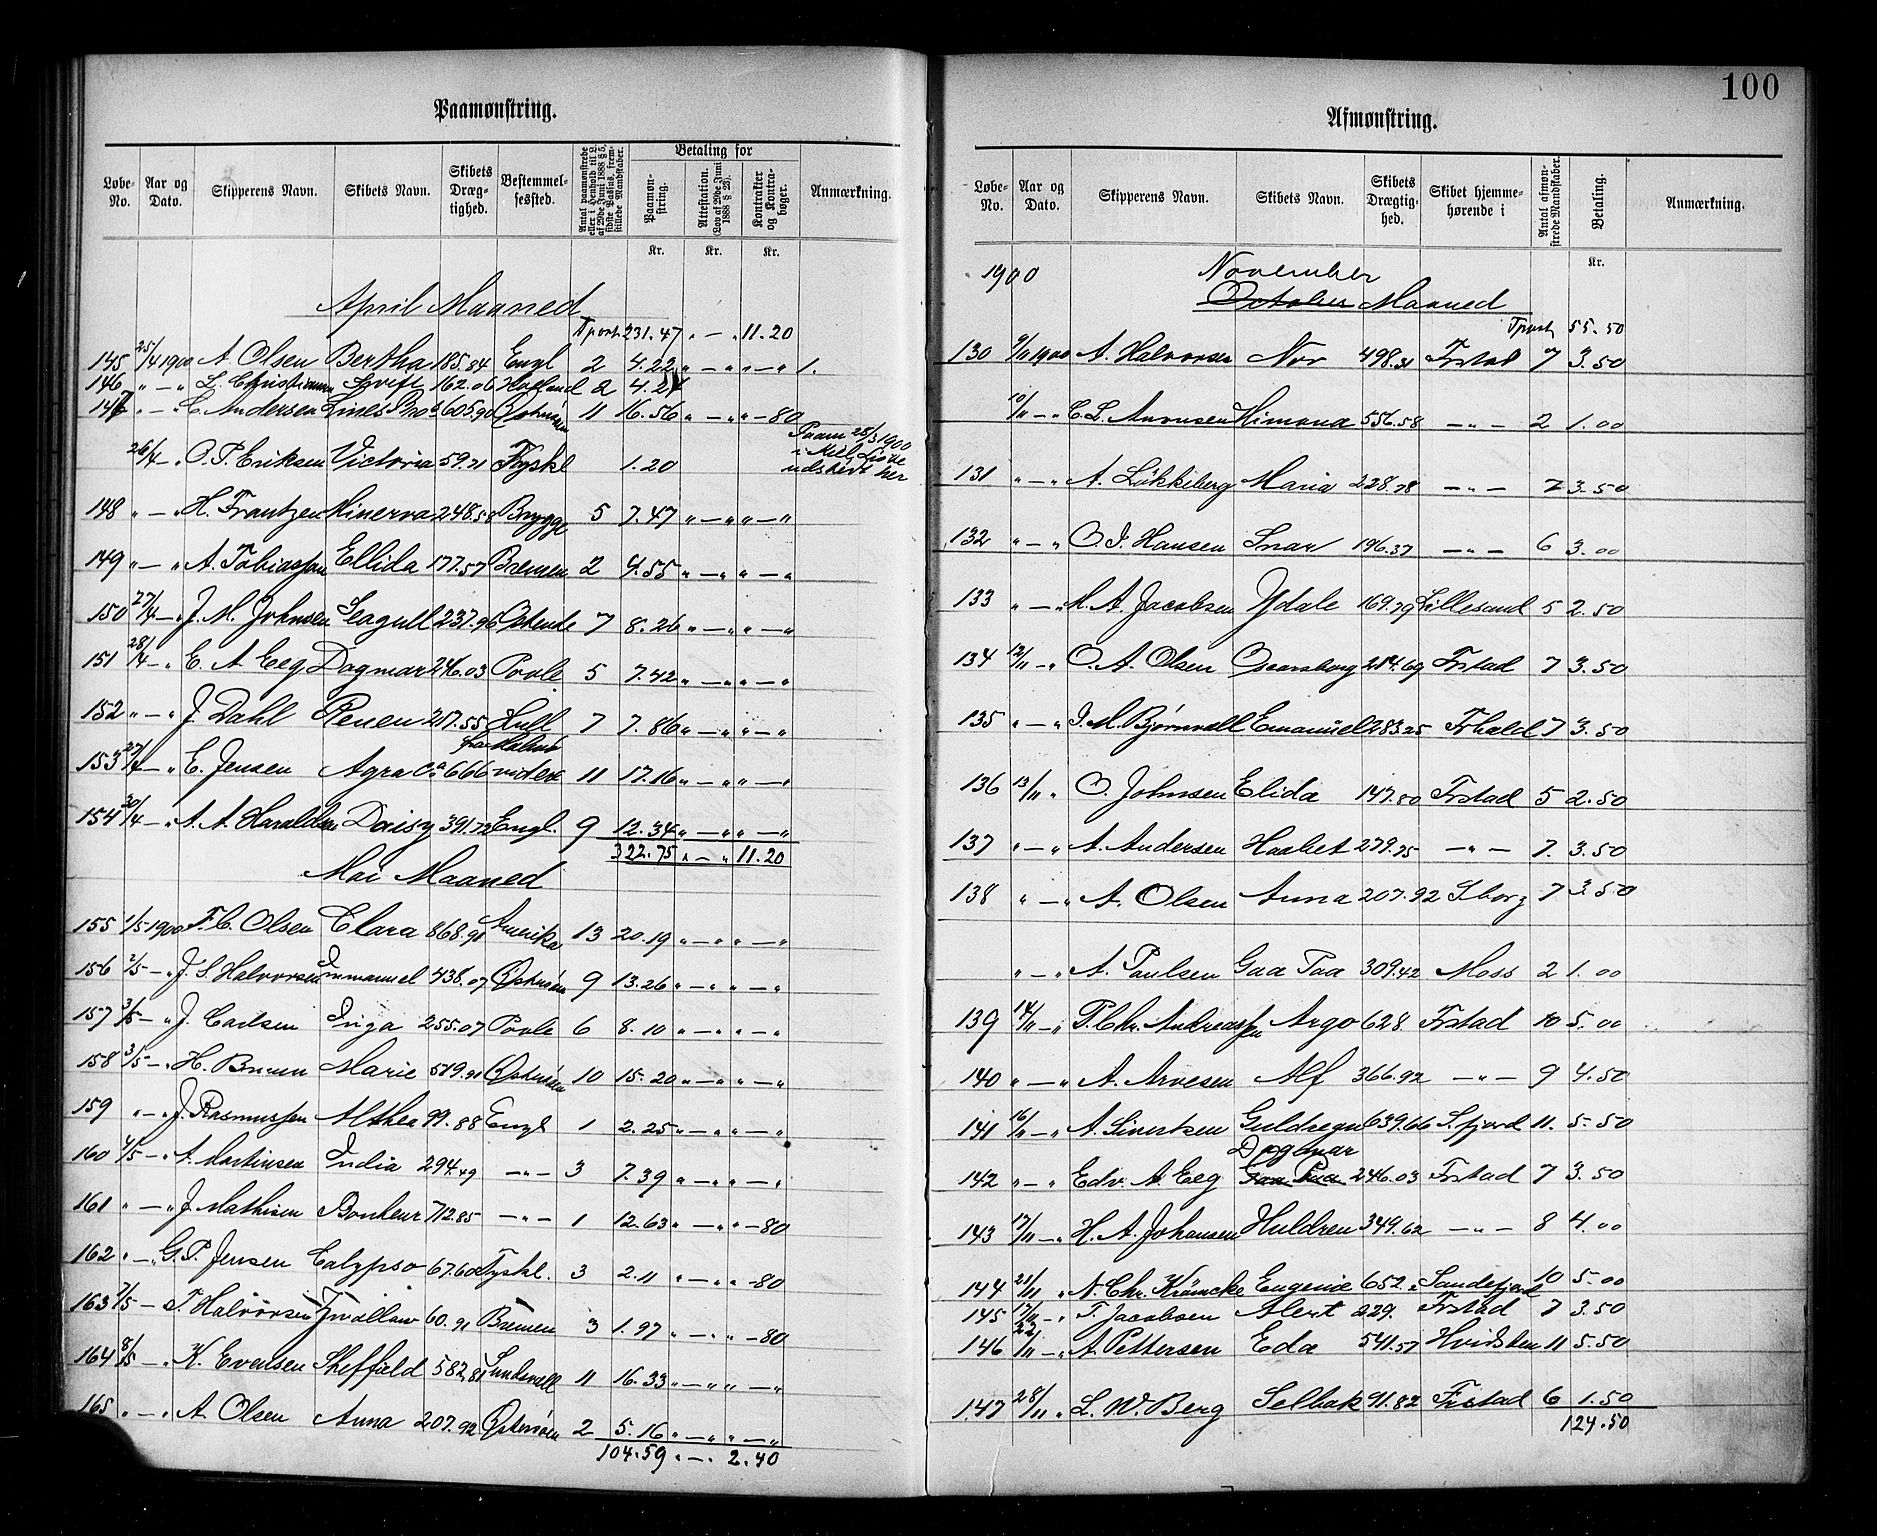 100
Paamønstring.
Løbe-No. Aar og Dato. Skipperens Navn. Skibets Navn. Skibets Dræg-tighed. Bestemmel-sessted. Antal paamønstrede eller i Henhold til L. af 29de Juni 1888 § 5, sidste Passus, frem-stillede Mandskaber. Betaling for Paamøn-string. Attestation. (Lov af 29de Juni 1888 § 23). Kontrakter og Kontra-bøger. Anmærkning.
Kr. Kr. Kr.
April Maaned
Tport 231.47 " — " 11.20
145 25/4 1900 A. Olsen Bertha 185.84 Engl 2 4.22 " — " " — " 1.
146 " — " L. Christiansen Svift 162.06 2 4.27
147 " — " C. Andersen 605.90 Østersøen 11 16.56 " — " " — 80
26/4 — " O. P. Eriksen Victoria 59.71 Tyskl 1.20 Paam 28/3 1900 udstedt her
148 " — " H. Frantzen Minerva 248.58 Brügge 5 7.47 " — " " — "
149 " — " A. Tobiassen Ellida 177.57 Bremen 2 4.55 " — " " — "
150 27/4 — " J. M. Johnsen Seagull 237.96 Ostende 7 8.26 " — " " — "
151 28/4 — " E. A. Eeg Dagmar 246.03 Poole 5 7.42 " — " " — "
152 " — " J. Dahl Renen 257.55 Hull 7 7.86 " — " " — "
153 27/4 — " E. Jensen Agra Ca 666 fra Malmö videre 11 17.16 " — " " — "
154 30/4 — " A. A. Haraldsen Daisy 391.72 Engl. 9 12.34 " — " " — "
322.75 " — " 11.20
Mai Maaned
155 1/5 1900 F. C. Olsen Clara 868.91 Amerika 13 20.19 " — " " — "
156 2/5 — " J. S. Halvorsen Immanuel 438.07 Østersøen 9 13.26 " — " " — "
157 3/5 — " J. Carlsen Inga 255.07 Poole 6 8.10 " — " " — "
158 3/5 — " H. Bruun Marie 579.91 Østersøen 10 15.20 " — " " — "
159 " — " J. Rasmussen Althea 99.88 Engl 1 2.25 " — " " — "
160 4/5 — " A. Martinsen India 294.49 — " — 3 7.39 " — " " — "
161 " — " J. Mathisen Bonheur 712.85 — " — 1 12.63 " — " " — 80
162 " — " G. P. Jensen Calypso 67.60 Tyskl. 3 2.11 " — " " — 80
163 7/5 — T. Halvorsen Swallow 60.91 Bremen 3 1.97 " — " " — 80
164 8/5 — " K. Evensen Sheffield 582.81 Sundsvall 11 16.33 " — " " — "
165 " — " A. Olsen Anna 207.92 Østersøen 2 5.16 " — " " — "
104.59 " — " 2.40
Afmønstring.
Løbe-No. Aar og Dato. Skipperens Navn. Skibets Navn. Skibets Drægtig-hed. Skibet hjemme-hørende i Antal afmøn-strede Mandskaber. Betaling. Anmærkning.
Kr.
1900 November
October Maaned
Tport 55.50
130 9/11 1900 A. Halvorsen Nor 498.31 Frstad 7 3.50
10/11 — " C. L. Himona 556.58 — " — 2 1.00
131 " — " A. Løkkeberg Maria 228.78 — " — 7 3.50
132 " — " O. J. Hansen Snar 196.37 — " — 6 3.00
133 " — " M. A. Jacobsen Ydale 169.79 Lillesand 5 2.50
134 12/11 — " O. A. Olsen 284.69 Frstad 7 3.50
135 " — " J. M. Bjørnvall Emanuel 283.25 Frhald 7 3.50
136 13/11 " O. Johnsen Elida 147.80 Frstad 5 2.50
137 " — " A. Andersen Haabet 279.75 — " — 7. 3.50
138 " — " A. Olsen Anna 207.92 Sborg 7 3.50
" — " A. Paulsen Gaa Paa 309.42 Moss 2 1.00
139 14/11 — " P. Chr. Andreassen Argo 628 Frstad 10 5.00
140 " — " A. Arvesen Alf 366.92 — " — 9 4.50
141 16/11 — " A. Sivertsen Guldregn 639.66 S.fjord 11. 5.50
142 " — " Edv. A. Eeg Gaa Paa Dagmar 246.03 Frstad 7 3.50
143 17/11 — " H. A. Johansen Huldren 349.62 — " — 8 4.00
144 21/11 " N. Chr. Krümcke Eugenie 652. " Sandefjord 10 5.00
145 17/11 — " T. Jacobsen Alert 229. Frstad 7 3.50
146 22/11 — " A. Pettersen Eda 541.57 Hvidsten 11 5.50
147 28/11 " L. W. Berg Selbak 91.82 Frstad 6 1.50
124.50